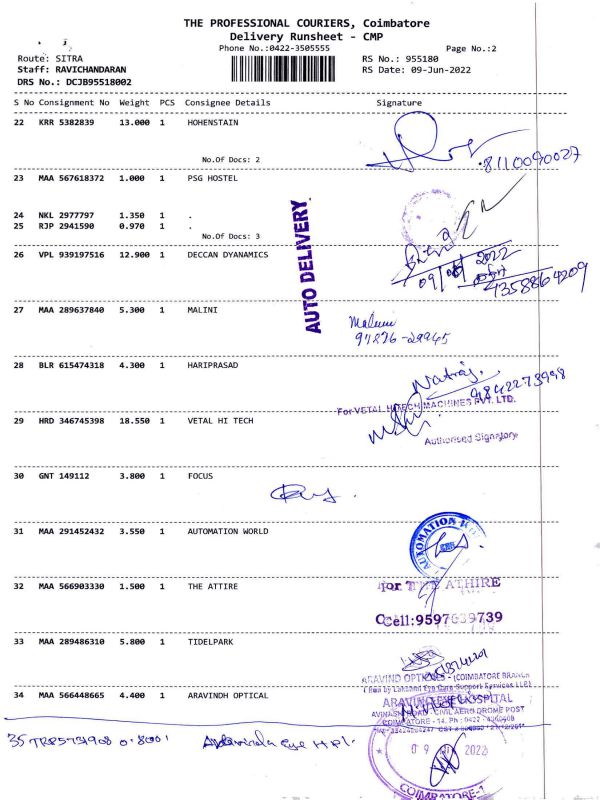 THE PROFESSIONAL COURIERS, Coimbatore
Delivery Runsheet - CMP
Phone No.:0422-3505555
Page No.:2
Route: SITRA
RS No.: 955180
Staff: RAVICHANDARAN
RS Date: 09-Jun-2022
DRS No.: DCJB95518002
S No Consignment No Weight PCS Consignee Details Signature
22 KRR 5382839 13.000 1 HOHENSTAIN
8110090027
No.Of Docs: 2
23 MAA 567618372 1.000 1 PSG HOSTEL
24 NKL 2977797 1.350 1 .
25 RJP 2941590 0.970 1 .
No.Of Docs: 3
AUTO DELIVERY
26 VPL 939197516 12.900 1 DECCAN DYANAMICS
2022
27 MAA 289637840 5.300 1 MALINI
Malini
28 BLR 615474318 4.300 1 HARIPRASAD
Natraj.
9842273998
For VETAL HITECH MACHINES PVT. LTD.
29 HRD 346745398 18.550 1 VETAL HI TECH
Authorised Signatory
30 GNT 149112 3.800 1 FOCUS
31 MAA 291452432 3.550 1 AUTOMATION WORLD
AUTOMATION
32 MAA 566903330 1.500 1 THE ATTIRE
For THE ATHIRE
Cell:9597639739
33 MAA 289486310 5.800 1 TIDELPARK
ARAVIND OPTICALS - (COIMBATORE BRANCH
( Run by Lakshmi Eye Care Support Services LLP)
34 MAA 566448665 4.400 1 ARAVINDH OPTICAL
ARAVIND EYE HOSPITAL
AVINASHI ROAD, CIVIL AERO DROME POST
COIMBATORE - 14. Ph : 0422 -
35
09 2022
COIMBATORE-1